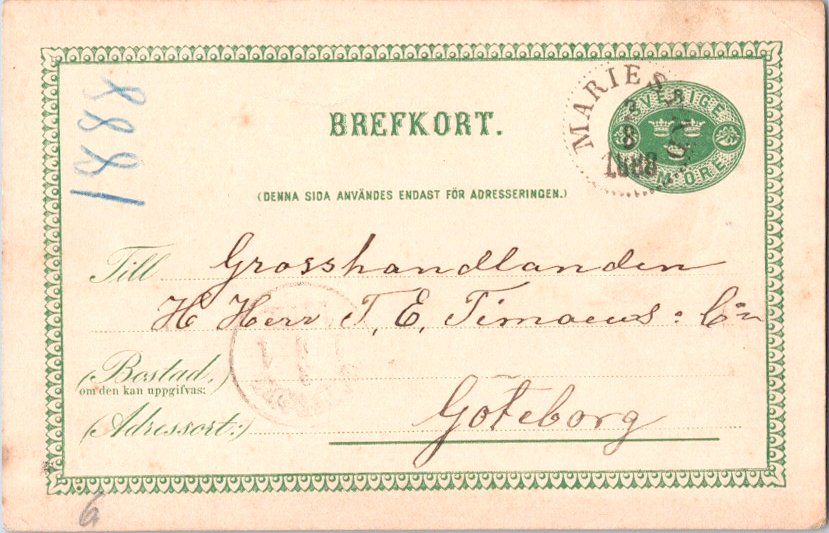 1888
BREFKORT.
SVERIGE
8
1888
ÖRE
(DENNA SIDA ANVÄNDES ENDAST FÖR ADRESSERINGEN.)
Till Grosshandlanden
H Herr T. E. Timaeus & C:n
(Bostad,)
om den kan uppgifvas:
(Adressort:) Göteborg
6